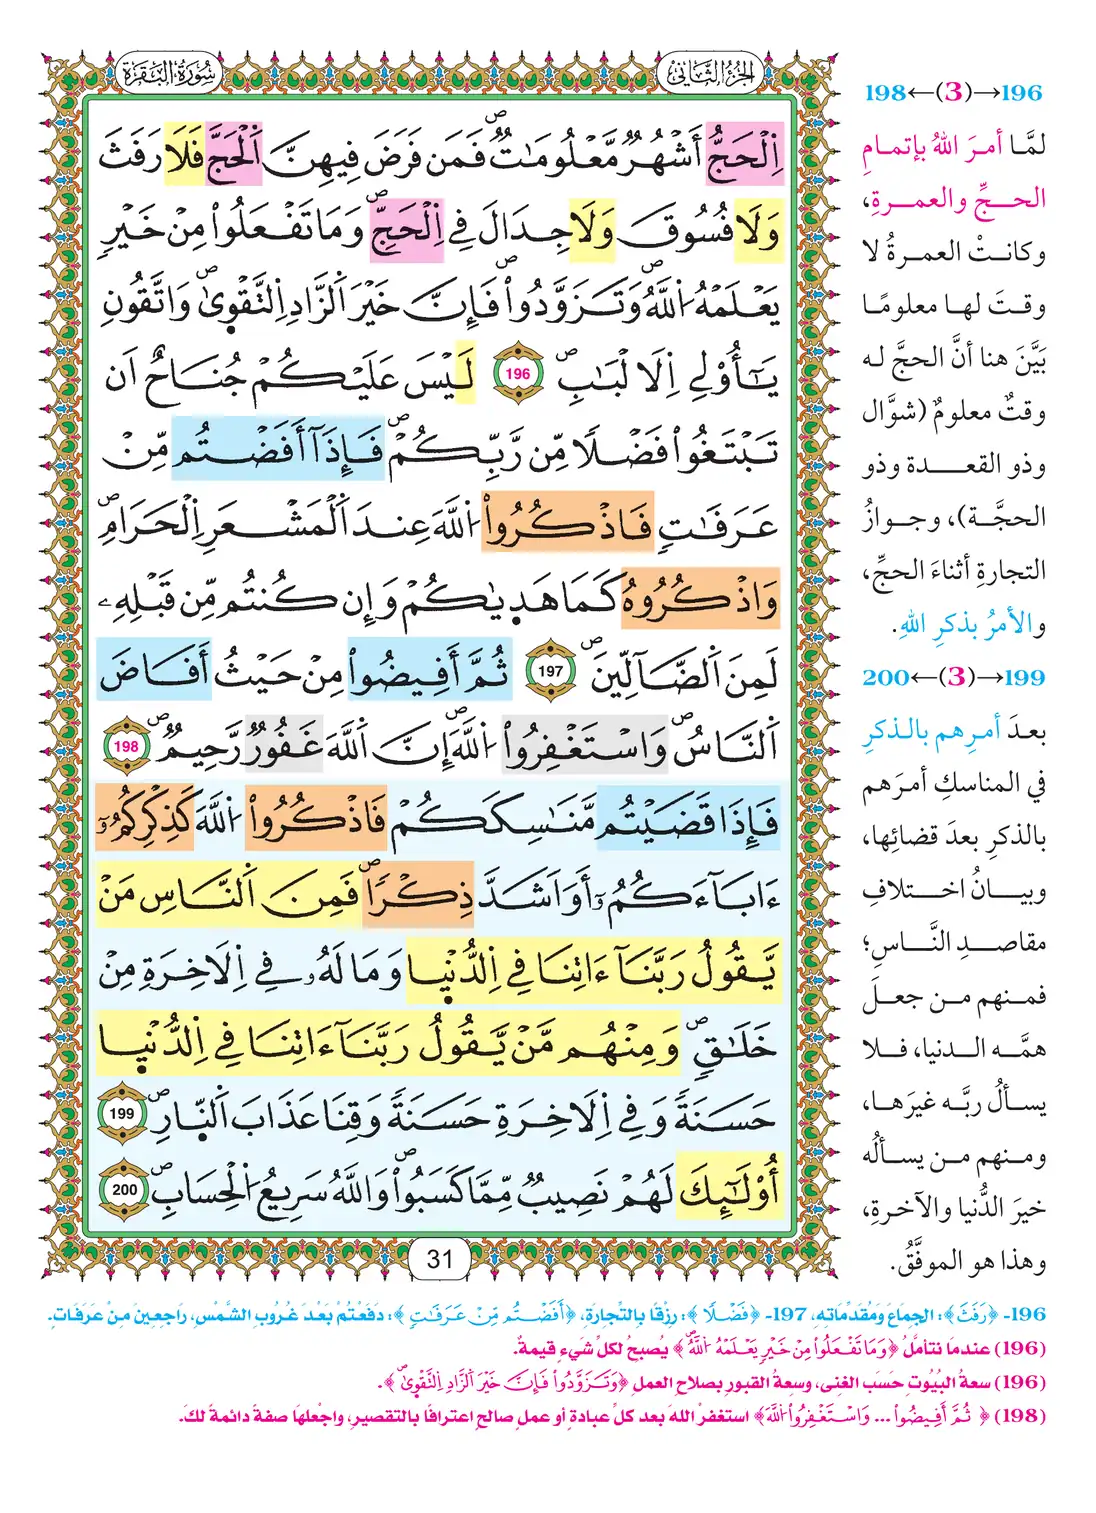 الجزء الثاني
سورة البقرة
اِ۬لْحَجُّ أَشْهُرٞ مَّعْلُومَٰتٞۖ فَمَن فَرَضَ فِيهِنَّ اَ۬لْحَجَّ فَلَا رَفَثَ
وَلَا فُسُوقَ وَلَا جِدَالَ فِے اِ۬لْحَجِّۖ وَمَا تَفْعَلُواْ مِنْ خَيْرٖ
يَعْلَمْهُ اُ۬للَّهُۖ وَتَزَوَّدُواْۖ فَإِنَّ خَيْرَ اَ۬لزَّادِ اِ۬لتَّقْو۪ىٰۖ وَاتَّقُونِ
يَٰٓأُوْلِے اِ۬لَالْبَٰبِۖ 196 لَيْسَ عَلَيْكُمْ جُنَاحٌ اَن
تَبْتَغُواْ فَضْلاٗ مِّن رَّبِّكُمْۖ فَإِذَآ أَفَضْتُم مِّنْ
عَرَفَٰتٖ فَاذْكُرُواْ اُ۬للَّهَ عِندَ اَ۬لْمَشْعَرِ اِ۬لْحَرَامِۖ
وَاذْكُرُوهُ كَمَا هَد۪يٰكُمْ وَإِن كُنتُم مِّن قَبْلِهِۦ
لَمِنَ اَ۬لضَّآلِّينَۖ 197 ثُمَّ أَفِيضُواْ مِنْ حَيْثُ أَفَاضَ
اَ۬لنَّاسُۖ وَاسْتَغْفِرُواْ اُ۬للَّهَۖ إِنَّ اَ۬للَّهَ غَفُورٞ رَّحِيمٞۖ 198
فَإِذَا قَضَيْتُم مَّنَٰسِكَكُمْ فَاذْكُرُواْ اُ۬للَّهَ كَذِكْرِكُمُۥٓ
ءَابَآءَكُمُۥٓ أَوَ اَشَدَّ ذِكْراٗۖ فَمِنَ اَ۬لنَّاسِ مَنْ
يَّقُولُ رَبَّنَآ ءَاتِنَا فِے اِ۬لدُّنْي۪ا وَمَا لَهُۥ فِے اِ۬لَاخِرَةِ مِنْ
خَلَٰقٖۖ وَمِنْهُم مَّنْ يَّقُولُ رَبَّنَآ ءَاتِنَا فِے اِ۬لدُّنْي۪ا
حَسَنَةٗ وَفِے اِ۬لَاخِرَةِ حَسَنَةٗ وَقِنَا عَذَابَ اَ۬لنّ۪ارِۖ 199
أُوْلَٰٓئِكَ لَهُمْ نَصِيبٞ مِّمَّا كَسَبُواْۖ وَاللَّهُ سَرِيعُ اُ۬لْحِسَابِۖ 200
31
198←(3)→196
لمَّا أمرَ اللهُ بإتمامِ
الحـجِّ والعمـرةِ،
وكانـتْ العمرةُ لا
وقـتَ لهـا معلومًـا
بَيَّنَ هنا أنَّ الحجَّ لـه
وقتٌ معلومٌ (شوَّال
وذو القعـدة وذو
الحجَّـة)، وجـوازُ
التجارةِ أثناءَ الحجِّ،
والأمرُ بذكرِ اللهِ.
200←(3)→199
بعـدَ أمـرِهم بالـذكرِ
في المناسكِ أمـرَهم
بالذكرِ بعدَ قضائِها،
وبيـانُ اخـتلافِ
مقاصـدِ النَّـاسِ؛
فمـنهم مـن جعـلَ
همَّـه الـدنيا، فـلا
يسـألُ ربَّـه غيرَهـا،
ومـنهم مـن يسـألُه
خيرَ الدُّنيا والآخرةِ،
وهذا هو الموفَّقُ.
196- ﴿رَفَثَ﴾: الجِمَاعَ وَمُقَدِّمَاتِهِ، 197- ﴿فَضْلاٗ﴾: رِزْقًا بِالتِّجَارَةِ، ﴿أَفَضْتُم مِّنْ عَرَفَٰتٖ﴾: دَفَعْتُمْ بَعْدَ غُرُوبِ الشَّمْسِ، رَاجِعِينَ مِنْ عَرَفَاتٍ.
(196) عندما نتأمَّلُ ﴿وَمَا تَفْعَلُواْ مِنْ خَيْرٖ يَعْلَمْهُ اُ۬للَّهُۖ﴾ يُصبحُ لكلِّ شَيءٍ قيمةٌ.
(196) سعةُ البُيُوتِ حَسَب الغِنى، وسعةُ القبورِ بصلاحِ العملِ ﴿وَتَزَوَّدُواْ فَإِنَّ خَيْرَ اَ۬لزَّادِ اِ۬لتَّقْو۪ىٰۖ﴾.
(198) ﴿ثُمَّ أَفِيضُواْ ... وَاسْتَغْفِرُواْ اُ۬للَّهَ﴾ استغفرْ اللهَ بعد كلِّ عبادةٍ أو عملٍ صالحٍ اعترافًا بالتقصيرِ، واجْعلهَا صفةً دائمةً لكَ.